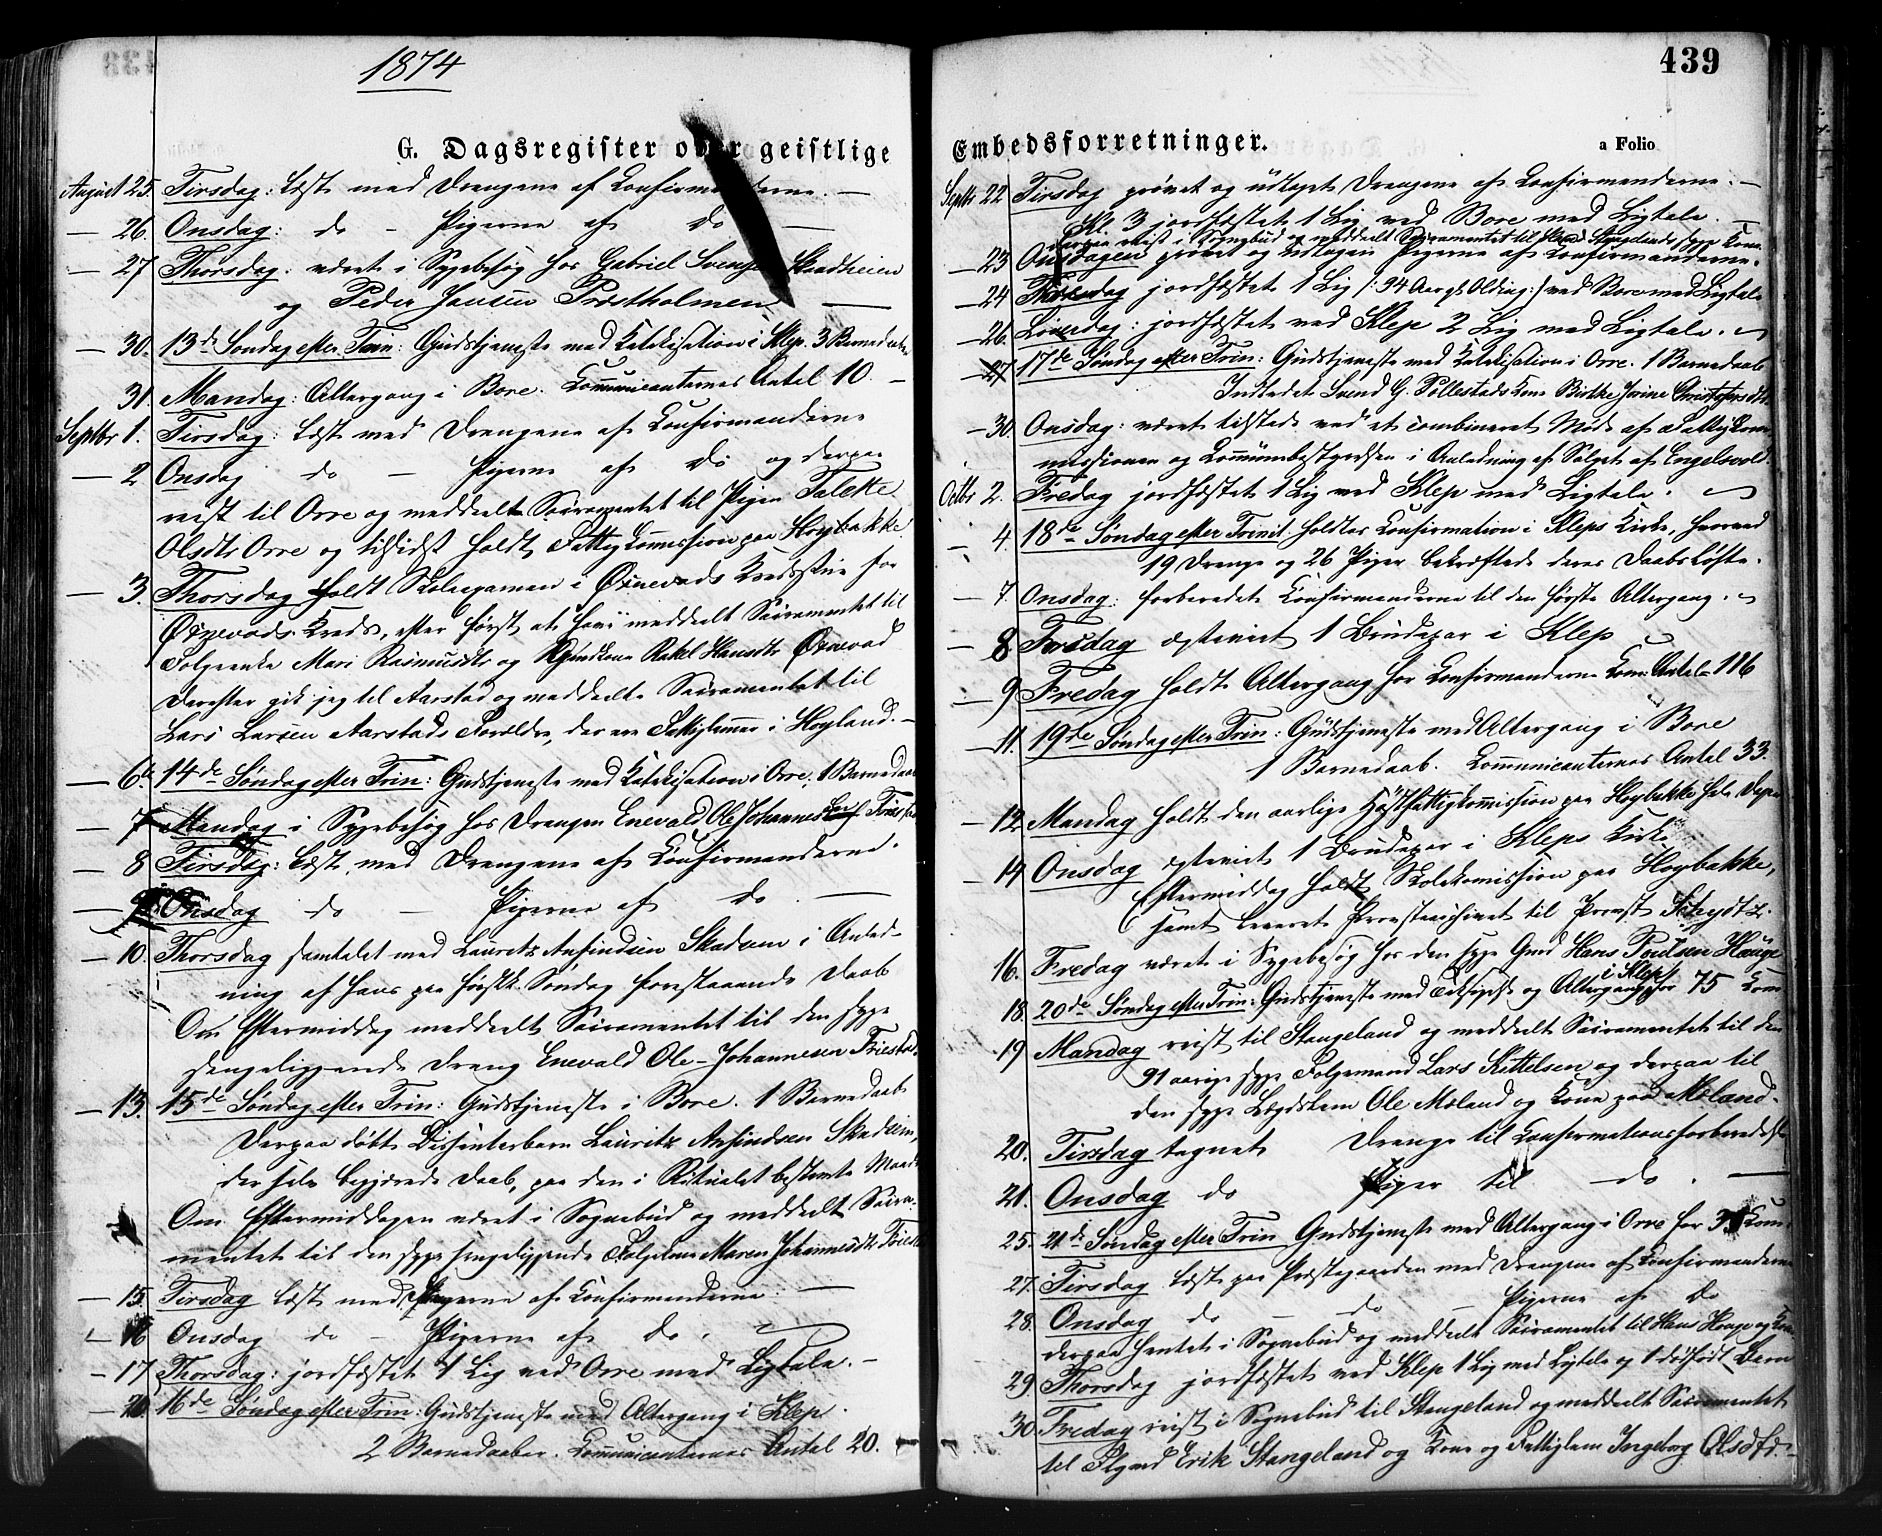 1874
G. Dagsregister over geistlige
August 25. Tirsdag: læst med Drengene af Confirmanderne. —
— 26. Onsdag: do — Pigerne af do —
— 27 Thorsdag: været i Sygebesøg hos Gabriel Svendsen Skadheien
og Peder Hansen Præstholmen —
— 30. 13de Søndag efter Trin: Gudstjeneste med Katekisation i Klep. 3 Barnedaab
31. Mandag: Altergang i Bore. Communicanternes Antal 10. —
Septbr 1. Tirsdag: læst med Drengene af Confirmanderne
— 2 Onsdag do — Pigerne af do og derpaa
reist til Orre og meddeelt Sacramentet til Pigen Talette
Olsdtr Orre og tilsidst holdt Fattigkommission paa Høybakke.
— 3. Thorsdag holdt Skoleexamen i Ørnevads Kredsstue for
Ørnevads Kreds, efter først at have meddeelt Sacramentet til
Folgeenke Mari Rasmusdtr og Gmdkone Rakel Hansdtr Ørnevad
Derefter gik jeg til Aarstad og meddeelte Sacramentet til
Lars Larsen Aarstads Forældre, der ere Fattiglemmer i Høyland. —
— 6te 14de Søndag efter Trin: Gudstjeneste med Katekisation i Orre. 1 Barnedaab
— 7 Mandag i Sygebesøg hos Drengen Enevald Ole Johannes Friestad
— 8 Tirsdag: læst med Drengene af Confirmanderne.
— 9 Onsdag do — Pigerne af do. —
— 10. Thorsdag samtalet med Lauritz Anfindsen Skadsem i Anled-
ning af hans paa førstk. Søndag forestaaende Daab
Om Eftermiddag meddeelt Sacramentet til den syge
sengeliggende Dreng Enevald Ole Johannesen Friestad.
— 13. 15de Søndag efter Trin: Gudstjeneste i Bore. 1 Barnedaab
Derpaa døbt Dissenterbarn Lauritz Anfindsen Skadsem,
der selv begjærede Daab, paa den i Ritualet bestemte Maade
Om Eftermiddagen været i Sognebud og meddeelt Sacra-
mentet til den syge sengeliggende Maren Johannesdtr Friestad
— 15. Tirsdag læst med Pigerne af Confirmanderne. —
— 16 Onsdag do — Pigerne af do.
— 17 Thorsdag: jordfæstet 1 Lig ved Orre med Ligtale. —
— 20. 16de Søndag efter Trin: Gudstjeneste med Altergang i Klep.
2 Barnedaaber. Communicanternes Antal 20.
439
Embedsforretninger.
a Folio
Septbr 22 Tirsdag prøvet og udtaget Drengene af Confirmanderne. —
Kl. 3 jordfæstet 1 Lig ved Bore med Ligtale. —
derpaa reist i Sognebud og meddeelt Sacramentet til Stangelands syge Kone
— 23 Onsdagen prøvet og udtagen Pigerne af Confirmanderne.
— 24 Thorsdag jordfæstet 1 Lig (: 94 Aar gl. Olding :) ved Bore med Ligtale
— 26. Løverdag: jordfæstet ved Klep 2 Lig med Ligtale.
— 27 17de Søndag efter Trin: Gudstjeneste med Katekisation i Orre. 1 Barnedaab
Indledet Svend G. Pollestads Kone Birthe Jorine Christofersdtr.
— 30. Onsdag: været tilstede ved et combineret Møde af Fattigkom-
missionen og Kommunebestyrelsen i Anledning af Salget af Engelsvold.
Octbr 2. Fredag jordfæstet 1 Lig ved Klep med Ligtale.
— 4. 18de Søndag efter Trinit. holdtes Confirmation i Kleps Kirke, hvorved
19 Drenge og 26 Piger bekræftede deres Daabsløfte.
— 7. Onsdag: forberedet Confirmanderne til den første Altergang.
— 8 Torsdag egteviet 1 Brudepar i Klep
— 9 Fredag holdt Altergang for Confirmanderne Kom: Antal 116
— 11. 19de Søndag efter Trin: Gudstjeneste med Altergang i Bore
1 Barnedaab. Communicanternes Antal 33.
— 12. Mandag holdt den aarlige Høstfattigkommission paa Høybakke hele Dagen
— 14 Onsdag egteviet 1 Brudepar i Kleps Kirke.
Eftermiddag holdt Skolekomission paa Høybakke,
samt leveret Provstearchivet til Provst Schydtz.
16. Fredag været i Sygebesøg hos den syge Gmd Hans Poulsen Hauge
18. 20de Søndag efter Trin: Gudstjeneste med og Altergang i Klep for 75 Kom
19 Mandag reist til Stangeland og meddeelt Sacramentet til den
91 aarige syge Folgemand Lars Kittelsen og derpaa til
den syge Ole Meland og Kone paa Meland.
20. Tirsdag tegnet Drenge til Confirmationsforberedelse
21. Onsdag do Piger til do. —
25. 21de Søndag efter Trin Gudstjeneste med Altergang i Orre for Kom
27. Tirsdag læst paa Præstegaarden med Drengene af Confirmanderne
28. Onsdag do — do — Pigerne af do
derpaa hentet i Sognebud og meddeelt Sacramentet til Hans Hauge og Kone.
29. Thorsdag jordfæstet ved Klep 1 Lig med Ligtale og 1 dødfødt Barn
30. Fredag reist i Sognebud til Stangeland og meddeelt Sacramentet
til Erik Stangeland og Kone og Fattiglem Ingeborg Olsdtr. —